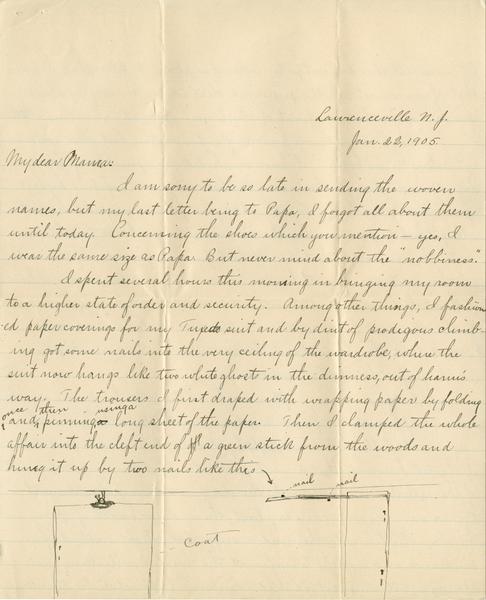 Lawrenceville N.J.
Jan. 22, 1905.
My dear Mama:
I am sorry to be so late in sending the woven
names, but my last letter being to Papa, I forgot all about them
until today. Concerning the shoes which you mention — yes, I
wear the same size as Papa. But never mind about the "nobbiness."
I spent several hours this morning in bringing my room
to a higher state of order and security. Among other things, I fashion-
ed paper coverings for my Tuxedo suit and by dint of prodigous climb-
ing got some nails into the very ceiling of the wardrobe, where the
suit now hangs like two white ghost in the dimness, out of harm's
way. The trousers I first draped with wrapping paper by folding
once then using a
and pinning long sheet of the paper. Then I clamped the whole
affair into the cleft end of a green stick from the woods and
hung it up by two nails like this
nail nail
coat